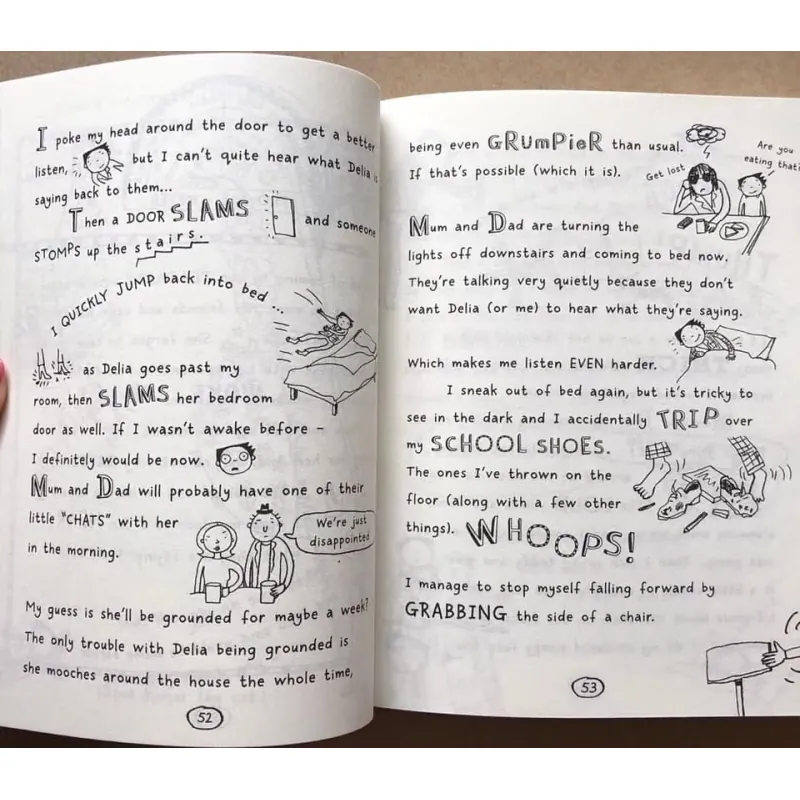 I poke my head around the door to get a better
listen, but I can't quite hear what Delia is
saying back to them...
Then a DOOR SLAMS and someone
STOMPS up the stairs.
I QUICKLY JUMP back into bed ...
as Delia goes past my
room, then SLAMS her bedroom
door as well. If I wasn't awake before -
I definitely would be now.
Mum and Dad will probably have one of their
little "CHATS" with her
in the morning.
We're just
disappointed
My guess is she'll be grounded for maybe a week?
The only trouble with Delia being grounded is
she mooches around the house the whole time,
52
being even GRUMPIER than usual.
If that's possible (which it is).
Get lost
Are you
eating that?
Mum and Dad are turning the
lights off downstairs and coming to bed now.
They're talking very quietly because they don't
want Delia (or me) to hear what they're saying.
Which makes me listen EVEN harder.
I sneak out of bed again, but it's tricky to
see in the dark and I accidentally TRIP over
my SCHOOL SHOES.
The ones I've thrown on the
floor (along with a few other
things). WHOOPS!
I manage to stop myself falling forward by
GRABBING the side of a chair.
53